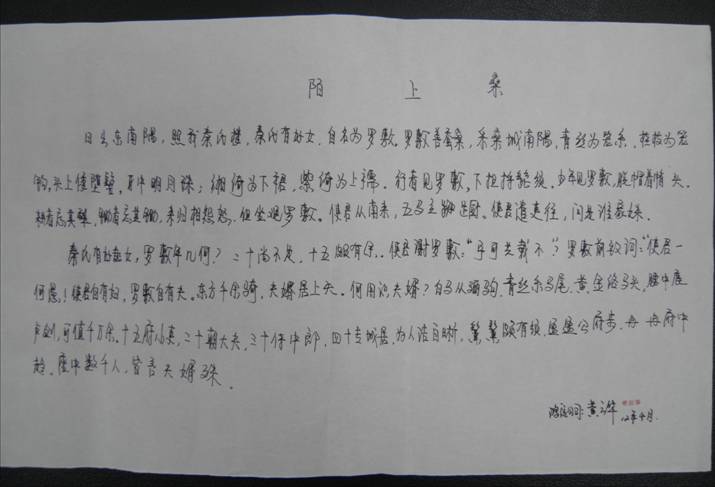 陌上桑
日出东南隅，照我秦氏楼，秦氏有好女，自名为罗敷。罗敷善蚕桑，采桑城南隅，青丝为笼系，桂枝为笼
钩，头上倭堕髻，耳中明月珠；缃绮为下裙，紫绮为上襦。行者见罗敷，下担捋髭须。少年见罗敷，脱帽着帩头。
耕者忘其犁，锄者忘其锄，来归相怨怒，但坐观罗敷。使君从南来，五马立踟蹰。使君遣吏往，问是谁家姝。
秦氏有好女，罗敷年几何？二十尚不足，十五颇有余。使君谢罗敷："宁可共载不"？罗敷前致词："使君一
何愚！使君自有妇，罗敷自有夫。东方千余骑，夫婿居上头。何用识夫婿？白马从骊驹，青丝系马尾，黄金络马头，腰中鹿
卢剑，可值千万余。十五府小吏，二十朝大夫，三十侍中郎，四十专城居，为人洁白晰，鬑鬑颇有须，盈盈公府步，冉冉府中
趋。座中数千人，皆言夫婿殊。
黄
12年4月.